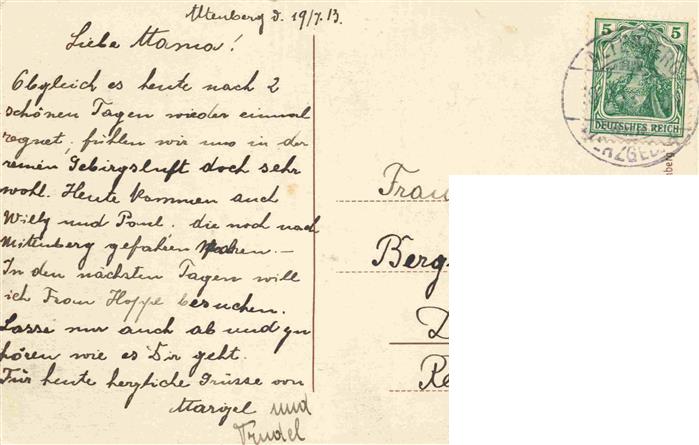 Altenberg d. 19/7. 13.
Liebe Mama!
Obgleich es heute nach 2
schönen Tagen wieder einmal
regnet, fühlen wir uns in der
reinen Gebirgsluft doch sehr
wohl. Heute kommen auch
Willy und Paul, die noch nach
Altenberg gefahren
In den nächsten Tagen will
ich Frau Hoppe besuchen.
Lasse nur auch ab und zu
hören wie es Dir geht.
Für heute herzliche Grüsse von
und
Trudel
5 5
DEUTSCHES REICH
ERZGEB
Frau
Berg